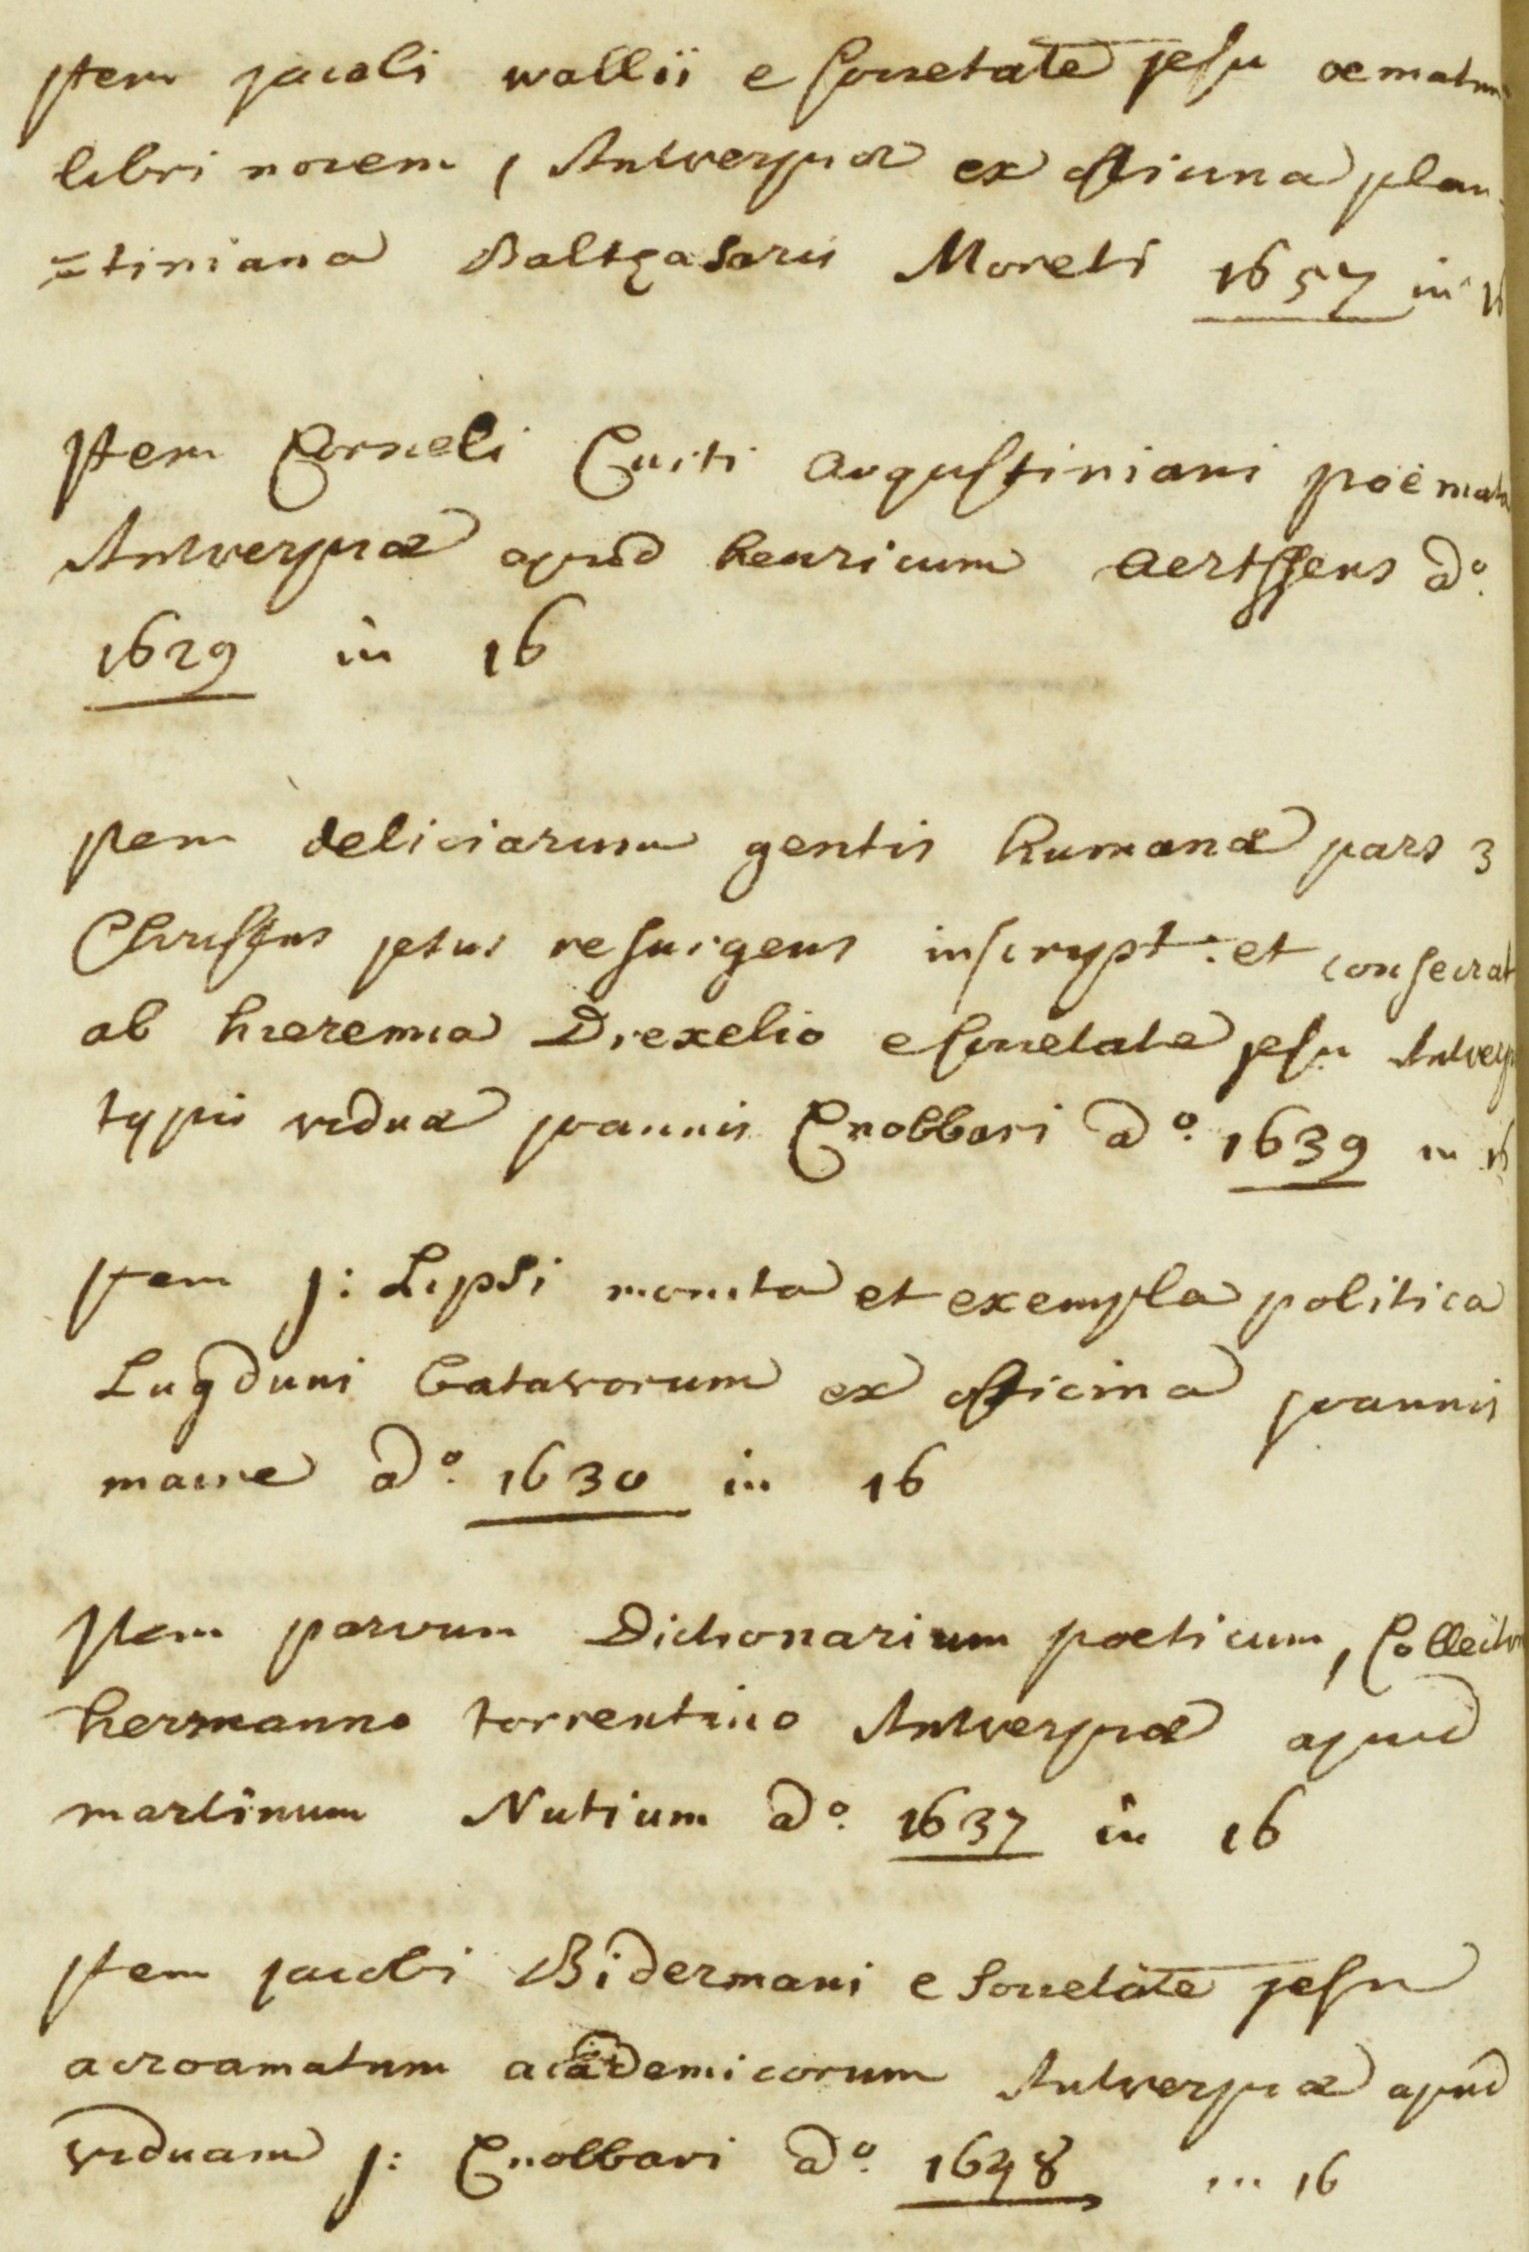 Item jacobi wallii e Societate jesu oematum
libri novem, Antverpiæ ex officina plan
=tiniana Baltgasaris Moreti 1657 in 16
Item Corneli Curti augustiniani poëmata
Antverpiæ apud henricum aertssens a°.
1629 in 16
Item deliciarum gentis humanæ pars 3
Christus jesus resurgens inscrypt. et consecrat
ab hieremia Drexelio e societate jesu Antverp
typis viduæ joannis Cnobbari a°. 1639 in 16
Item j: Lipsi monita et exempla politica
Lugduni batavorum ex officina joannis
maire a°. 1630 in 16
Item parvum Dictionarium poeticum, Collect
hermanno torrentino Antverpiæ apud
martinum Nutium a°. 1637 in 16
Item jacobi Bidermani e Societate jesu
acroamatum academicorum Antverpiæ apud
viduam j: Cnobbari a°. 1648 in 16